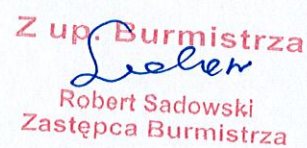 Z up. Burmistrza
Robert Sadowski
Zastępca Burmistrza